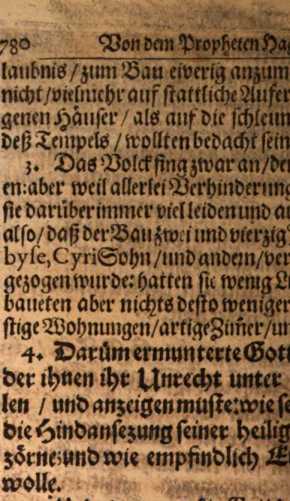 780 Von dem Propheten Hag
laubnis / zum Bau eiverig anzum
nicht / vielmehr auf stattliche Aufer
genen Häuser / als auf die schleun
deß Tempels / wollten bedacht sein
3. Das Volck fing zwar an / de
en: aber weil allerlei Verhinderung
sie darüber immer viel leiden und au
also / daß der Bau zwei und vierzig
byse, Cyri Sohn / und andern / ver
gezogen wurde: hatten sie wenig L
baueten aber nichts desto weniger
stige Wohnungen / artige Zim̃er / un
4. Darüm ermunterte Gott
der ihnen ihr Unrecht unter
len / und anzeigen muste: wie se
die Hindansezung seiner heilig
zörne: und wie empfindlich E
wolle.